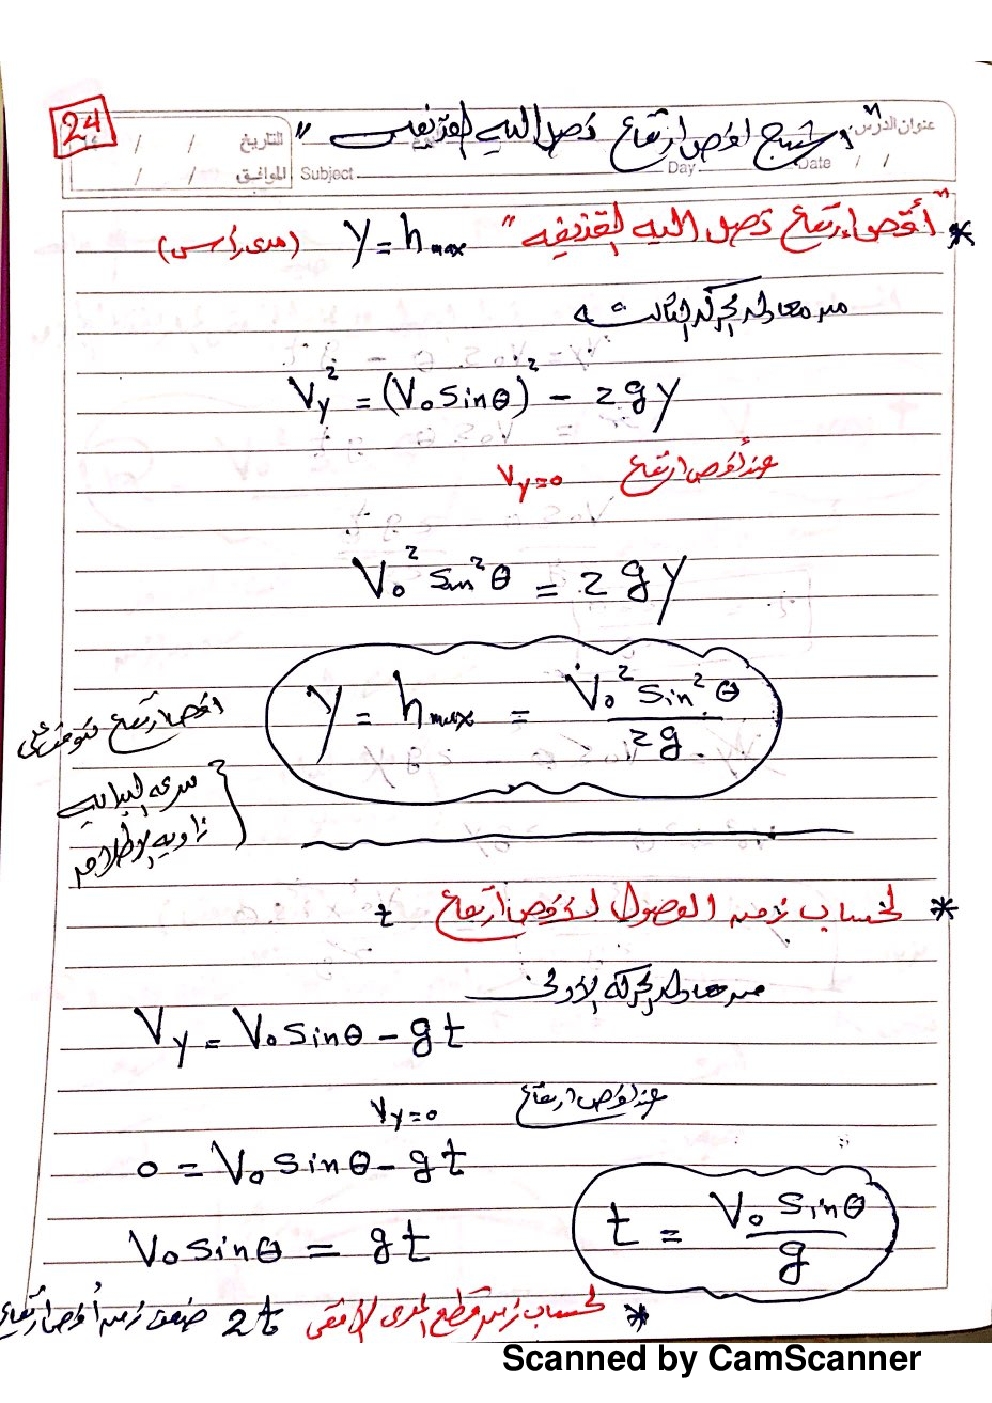 24
عنوان الدرس
التاريخ / /
الموافق / /
Subject
Day
Date / /
"استنتاج اقصى ارتفاع تصل اليه القذيفة"
* "أقصى ارتفاع تصل اليه القذيفه" y = hmax (مدى رأسى)
من معادلة الحركة الثالثة
Vy² = (V₀ sinθ)² - 2gy
عند أقصى ارتفاع Vy=0
V₀² sin²θ = 2gy
y = hmax = V₀² sin²θ / 2g
اقصى ارتفاع يتوقف على
سرعة البداية
زاوية الاطلاق
* لحساب زمن الوصول لاقصى ارتفاع t
من معادلة الحركة الأولى
Vy = V₀ sinθ - gt
عند اقصى ارتفاع
Vy=0
0 = V₀ sinθ - gt
V₀ sinθ = gt
t = V₀ sinθ / g
* لحساب زمن قطع المدى الأفقى 2t ضعف زمن أقصى ارتفاع
Scanned by CamScanner